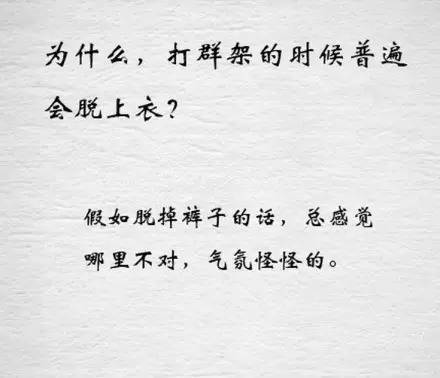 为什么，打群架的时候普遍
会脱上衣？
假如脱掉裤子的话，总感觉
哪里不对，气氛怪怪的。